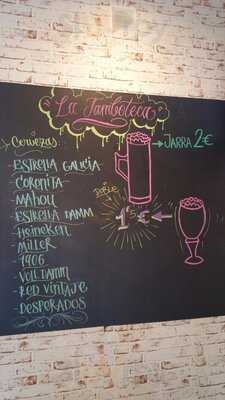 La Jamboteca
Cervezas
JARRA 2€
- ESTRELLA GALICIA
- CORONITA
- MAHOU
- ESTRELLA DAMM
- Heineken
- MILLER
- 1906
- VOLL DAMM
- RED VINTAJE
- DESPERADOS
DOBLE
1'5€